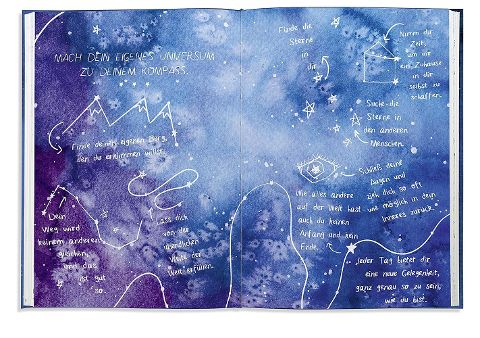 MACH DEIN EIGENES UNIVERSUM
ZU DEINEM KOMPASS.
Finde deinen eigenen Berg,
den du erklimmen willst.
Dein
Weg wird
keinem anderen
gleichen,
und das
ist gut
so.
Lass dich
von der
unendlichen
Weite der
Welt erfüllen.
Finde die
Sterne
in
dir
Nimm dir
Zeit,
um dir
ein Zuhause
in dir
selbst zu
schaffen.
Suche die
Sterne in
den anderen
Menschen.
Schließ deine
Augen und
zieh dich so oft
wie möglich in dein
Inneres zurück.
Wie alles andere
auf der Welt hast
auch du keinen
Anfang und kein
Ende.
Jeder Tag bietet dir
eine neue Gelegenheit,
ganz genau so zu sein,
wie du bist.